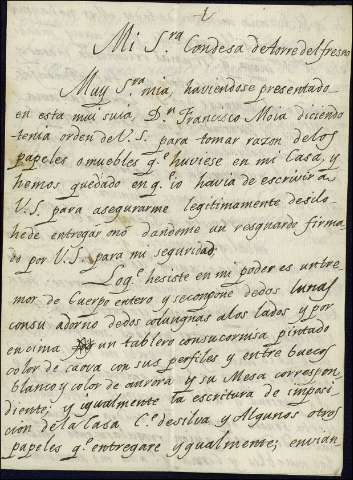 Mi S.ra Condesa de torre del fresno
Muy S.ra mia, haviendose presentado
en esta mui suia, D.n Francisco Moia diciendo
tenia orden de V.S. para tomar razon delos
papeles o muebles q.e huviese en mi Casa, y
hemos quedado en q.e io havia de escrivir a
V.S. para asegurarme legitimamente desilo
hede entregar ono dandome un resguardo firma
do por V.S. para mi seguridad.
Loq.e hesiste en mi poder es un tre
mor de Cuerpo entero y secompone dedos lunas
consu adorno dedos colungnas alos lados y por
encima un tablero consucornisa pintado
color de caova con sus perfiles y entre buecos
blanco y color de aurora y su Mesa correspon
diente; y igualmente la escritura de imposi
cion dela Casa C.e desilva y Algunos otros
papeles q.e entregare ygualmente; envian